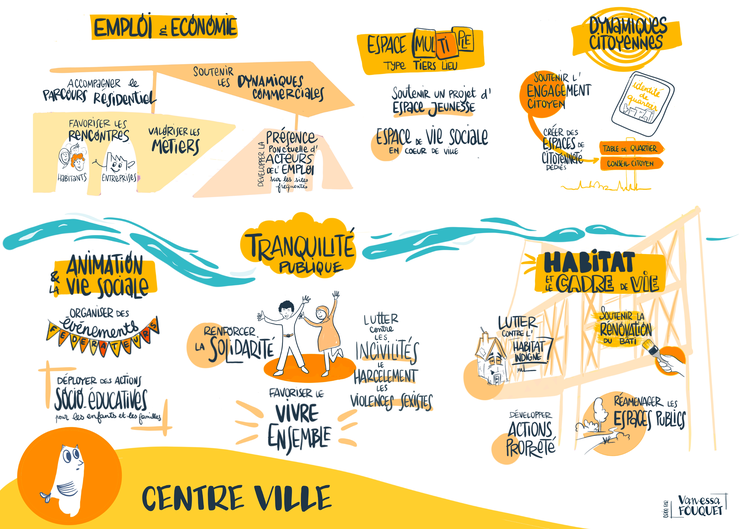 EMPLOI & ÉCONOMIE
ACCOMPAGNER LE
PARCOURS RÉSIDENTIEL
SOUTENIR
LES DYNAMIQUES
COMMERCIALES
FAVORISER LES
RENCONTRES
HABITANTS
ENTREPRISES
VALORISER LES
MÉTIERS
DÉVELOPPER LA
PRÉSENCE
PONCTUELLE D'
ACTEURS
DE L'EMPLOI
sur les sites
fréquentés
ESPACE MULTIPLE
TYPE TIERS LIEU
SOUTENIR UN PROJET D'
ESPACE JEUNESSE
ESPACE DE VIE SOCIALE
EN COEUR DE VILLE
DYNAMIQUES
CITOYENNES
SOUTENIR L'
ENGAGEMENT
CITOYEN
identité
de
quartier
CRÉER DES
ESPACES DE
CITOYENNETÉ
DÉDIÉS
TABLE DE QUARTIER
CONSEIL CITOYEN
ANIMATION
& LA VIE SOCIALE
ORGANISER DES
événements
FÉDÉRATEURS
DÉPLOYER DES ACTIONS
SOCIO-ÉDUCATIVES
pour les enfants et les familles
TRANQUILITÉ
PUBLIQUE
RENFORCER
LA SOLIDARITÉ
FAVORISER LE
VIVRE
ENSEMBLE
LUTTER
contre
LES
INCIVILITÉS
LE
HARCÈLEMENT
LES
VIOLENCES SEXISTES
HABITAT
ET LE CADRE DE VIE
LUTTER
CONTRE L'
HABITAT
INDIGNE
SOUTENIR LA
RÉNOVATION
DU BÂTI
DÉVELOPPER
ACTIONS
PROPRETÉ
RÉAMENAGER LES
ESPACES PUBLICS
CENTRE VILLE
Vanessa
FOUQUET